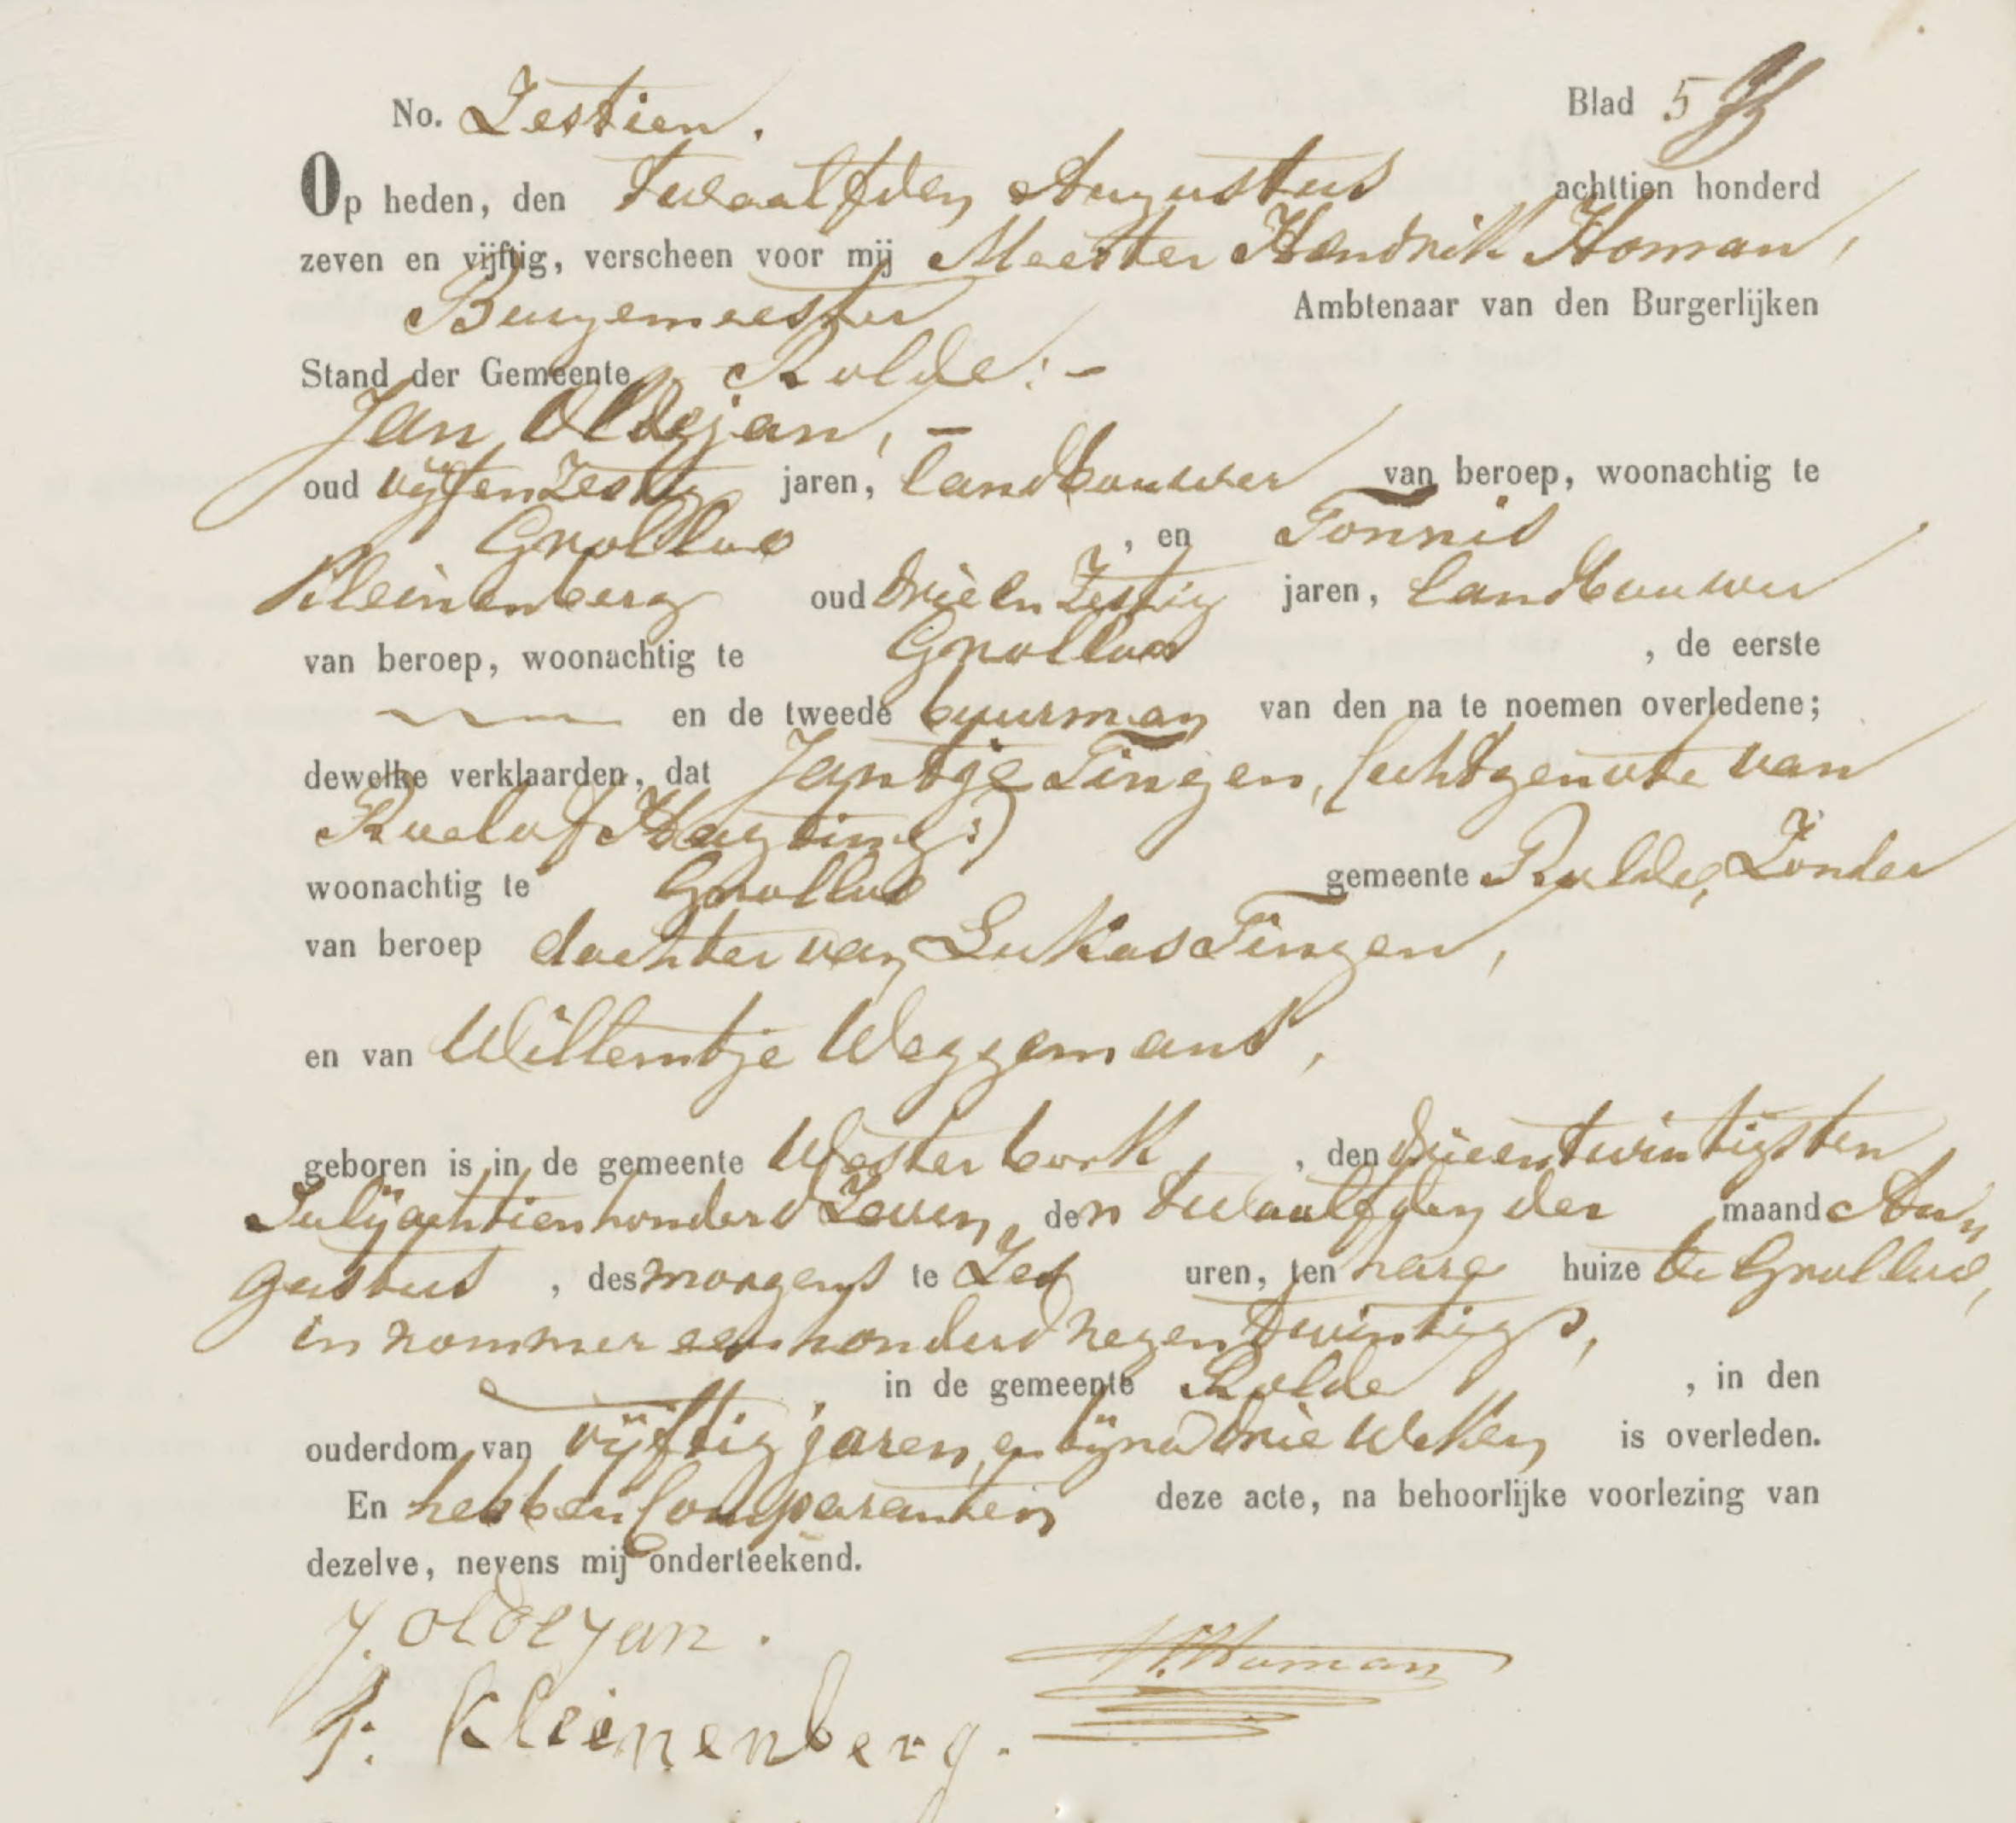 No. Zestien. Blad 5
Op heden, den twaalfden Augustus achttien honderd
zeven en vijftig, verscheen voor mij Meester Hendrik Homan,
Burgemeester Ambtenaar van den Burgerlijken
Stand der Gemeente Rolde: -
Jan Oldejan, -
oud vijfenzestig jaren, landbouwer van beroep, woonachtig te
Grolloo , en Tonnis
Kleinenberg oud drieenzestig jaren, landbouwer
van beroep, woonachtig te Grolloo , de eerste
en de tweede buurman van den na te noemen overledene;
dewelke verklaarden, dat Jantje Tingen, (echtgenote van
Roelof Hayting:)
woonachtig te Grolloo gemeente Rolde, zonder
van beroep dochter van Lukas Tingen,
en van Willemtje Weggemans,
geboren is in de gemeente Westerbork , den drieentwintigsten
Julij achtienhonderd zeven, den twaalfden der maand Au„
gustus , des morgens te zes uren, ten hare huize te Grolloo,
in nommer eenhonderd negentwintig,
in de gemeente Rolde , in den
ouderdom van vijftig jaren, en bijna drie weken is overleden.
En hebben Comparanten deze acte, na behoorlijke voorlezing van
dezelve, nevens mij onderteekend.
J. oldeyan.
H. Homan
T. Kleinenberg.